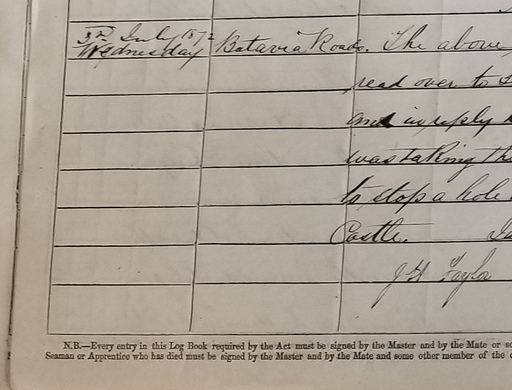 3rd July 187
Wednesday Batavia Roads. The above
read over to
and in reply
was taking th
to stop a hole
Castle.
J H Taylor
N.B.—Every entry in this Log Book required by the Act must be signed by the Master and by the Mate or so
Seaman or Apprentice who has died must be signed by the Master and by the Mate and some other member of the c